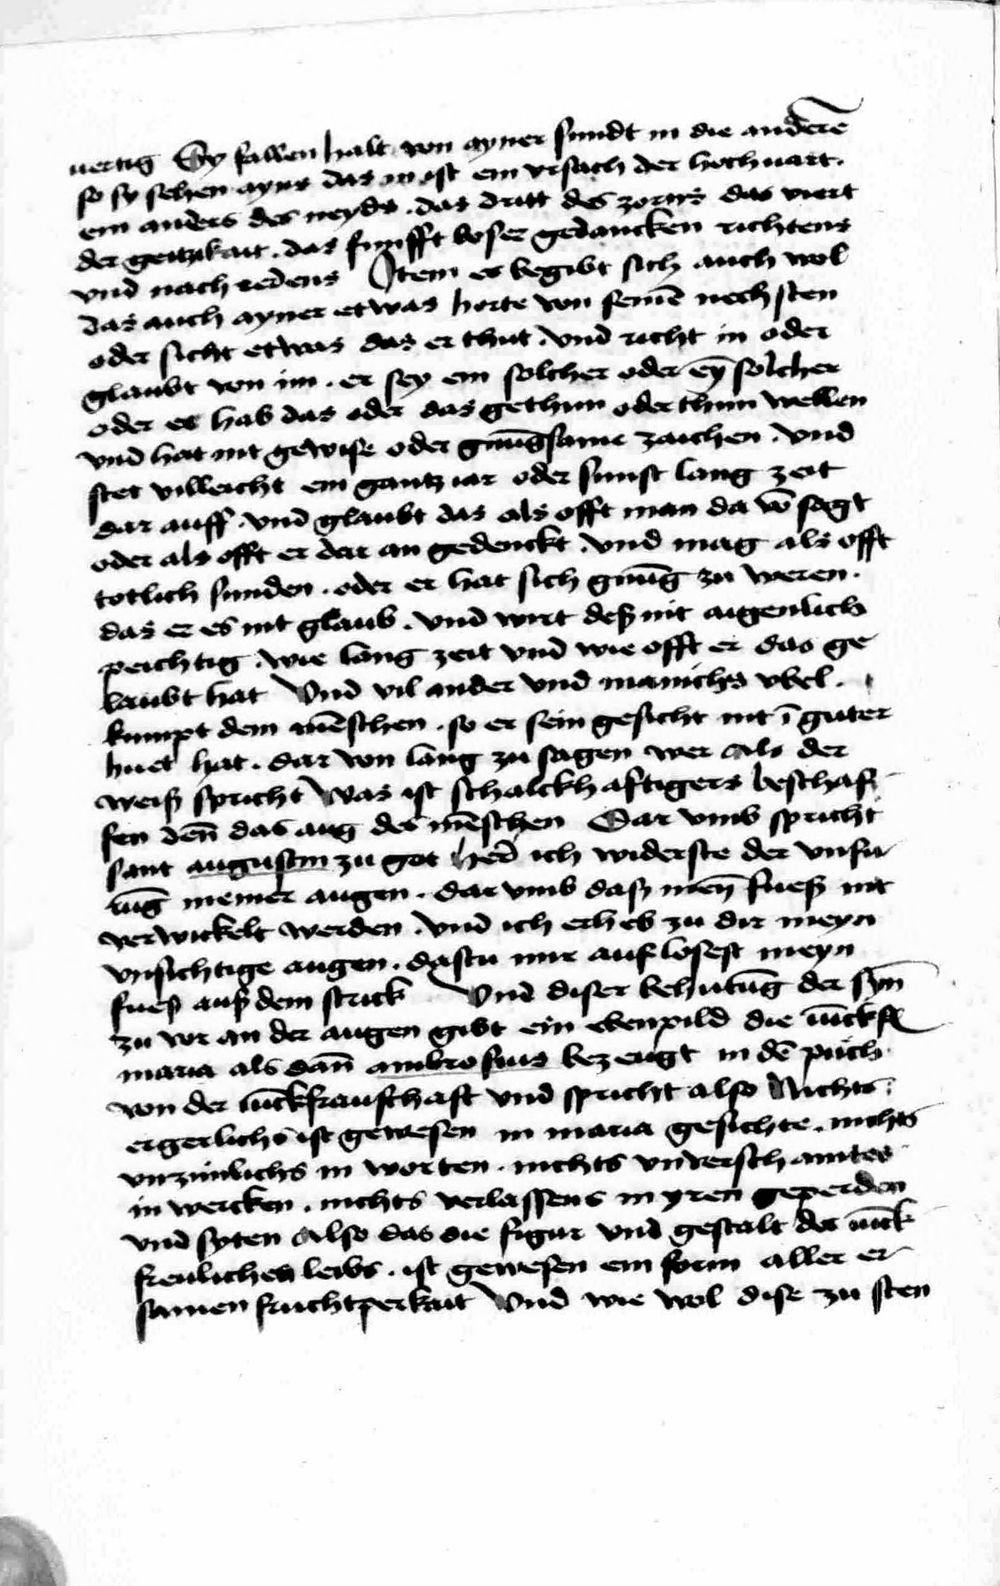 uertig Sy fallen halt von ayner sundt in die anderē
so sy sehen ayns das in ist ein vrsach der hochuart.
ein anders des neyds. das dritt des zorns das viert
der geitzikait. das funfft boser gedancken richtens
vnd nach redens Item es begibt sich auch wol
das auch ayner etwas horte von seinē nechsten
oder sicht etwas das er thut. vnd richt in oder
glaubt von im. er sey ein solcher oder eȳ solcher
oder es hab das oder das gethun oder thun wellen
vnd hat nit gewise oder gnūgsame zaichen. vnd
stet villeicht ein gantz iar oder sunst lang zeit
dar auff. vnd glaubt das als offt man da vō sagt
oder als offt er dar an gedenckt. vnd mag als offt
totlich sunden. oder er hat sich gnūg zu weren.
das er es nit glaub. vnd wirt deß nit aigenlich
peichtig. wie lang zeit vnd wie offt er das ge
laubt hat Vnd vil ander vnd manichs vbel.
kumpt dem mēschen. so er sein gesicht nit ī guter
huet hat. dar von lang zu sagen wer Als der
weiß spricht Was ist schalckhaftigers beschaf
fen den̄ das aug des mēschen Dar vmb spricht
sant augustin zu got Her̄ ich widerste der vnfu
rūg meiner augen. dar vmb daß meȳ fueß nit
verwickelt werden. vnd ich erheb zu dir meyn
vnsichtige augen. dastu mir auf losest meyn
fueß auß dem strick Vnd diser behutūg der syn̄
zu vor an der augen gibt ein ebenpild die iūckf
maria als dan̄ ambrosius bezeugt in dē puch
von der iūckfraufchaft vnd spricht also Nichts
ergerlichs ist gewesen in maria gesichte. nichts
vnzimlichs in worten. nichts vnverschamtes
in wercken. nichts verlassens in yren geperden
vnd syten Also das die figur vnd gestalt des iūck
freulichen leibs. ist gewesen ein form aller er
samen fruchtperkait Vnd wie wol dise zu sten